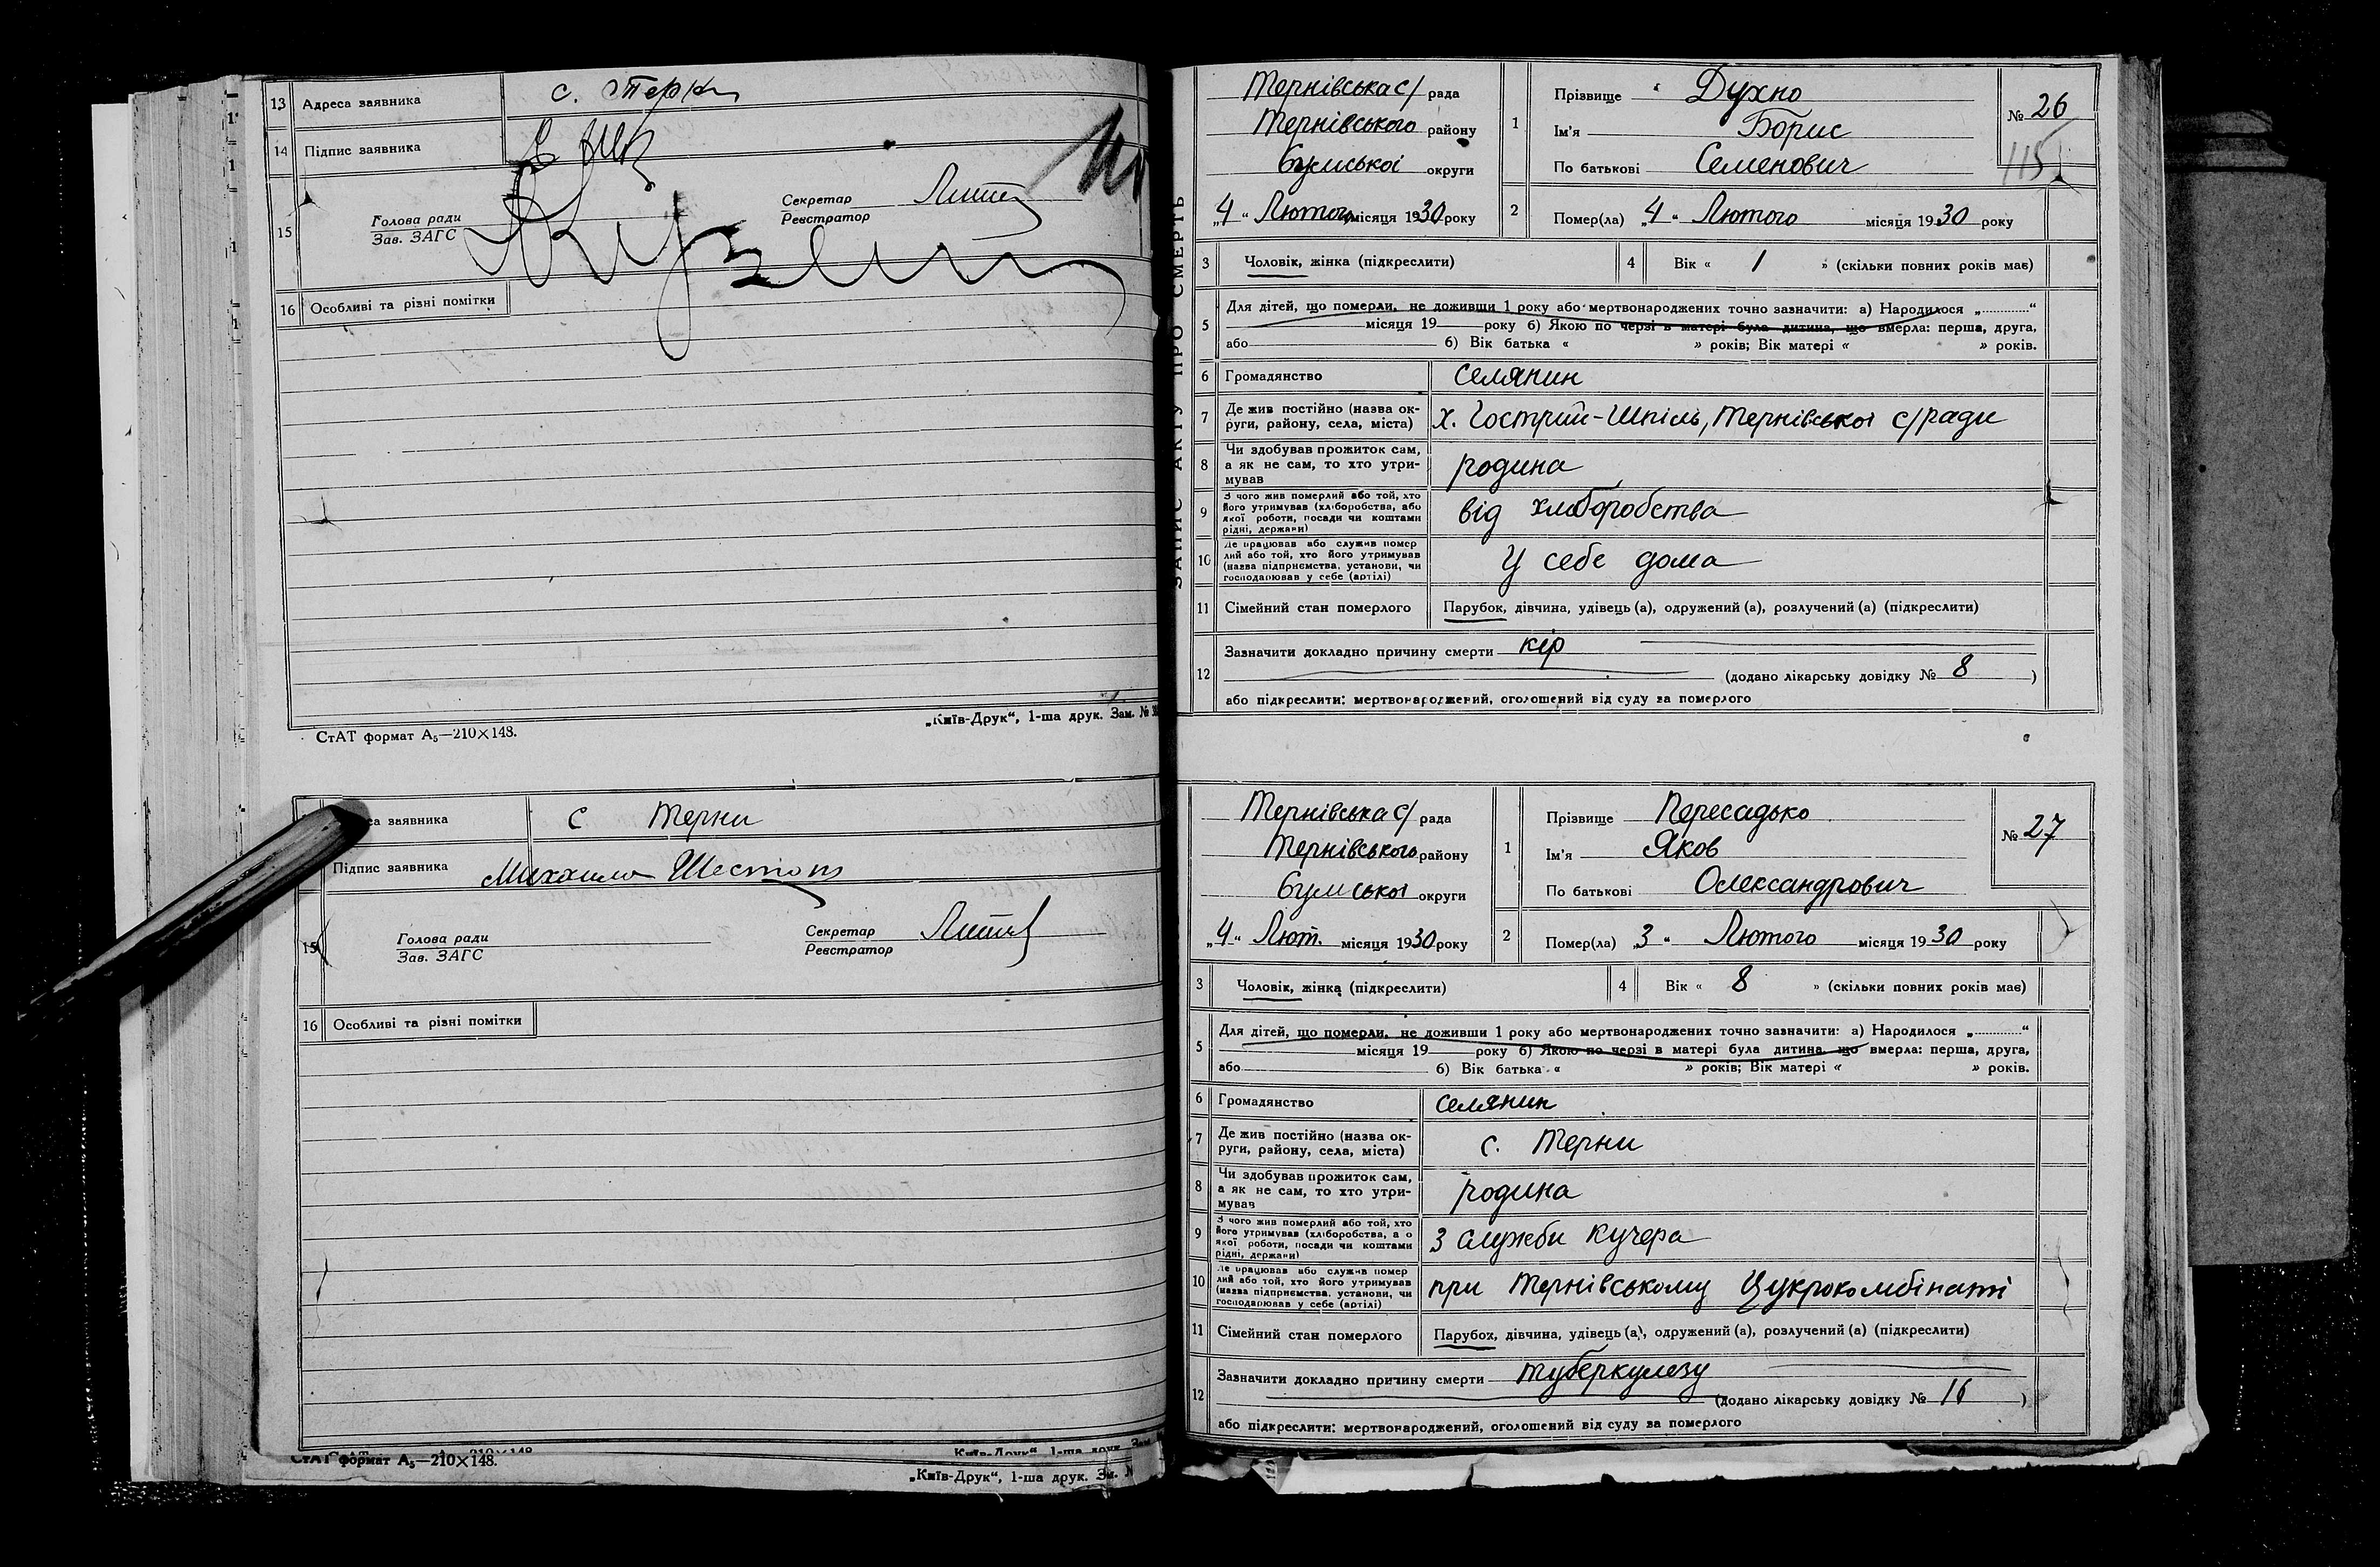 13 Адреса заявника с. Терни
14 Підпис заявника
15 Голова ради
Зав. ЗАГС
Секретар
Реєстратор
16 Особливі та різні помітки
СтАТ формат А₅—210×148.
„Київ-Друк“, 1-ша друк. Зам. №
са заявника с Терни
Підпис заявника Михайло
15 Голова ради
Зав. ЗАГС
Секретар
Реєстратор
16 Особливі та різні помітки
СтАТ формат А₅—210×148.
„Київ-Друк“, 1-ша друк. Зам. №
ЗАПИС АКТУ ПРО СМЕРТЬ
Тернівська с/ рада
Тернівського району
Сумської округи
„4“ Лютого місяця 1930 року
1 Прізвище Духно
Ім'я Борис
По батькові Семенович
№ 26
115
2 Помер(ла) „4“ Лютого місяця 1930 року
3 Чоловік, жінка (підкреслити)
4 Вік « 1 » (скільки повних років має)
5 Для дітей, що померли, не доживши 1 року або мертвонароджених точно зазначити: а) Народилося „............“
місяця 19 року б) Якою по черзі в матері була дитина, що вмерла: перша, друга,
або б) Вік батька « » років; Вік матері « » років.
6 Громадянство селянин
7 Де жив постійно (назва ок-
руги, району, села, міста) х. Гострий-Шпіль, Тернівської с/ради
8 Чи здобував прожиток сам,
а як не сам, то хто утри-
мував родина
9 З чого жив померлий або той, хто
його утримував (хліборобства, або
якої роботи, посади чи коштами
рідні, держави) від хліборобства
10 Де працював або служив помер
лий або той, хто його утримував
(назва підприємства, установи, чи
господарював у себе (артілі) У себе дома
11 Сімейний стан померлого Парубок, дівчина, удівець (а), одружений (а), розлучений (а) (підкреслити)
12 Зазначити докладно причину смерти кір
(додано лікарську довідку № 8 )
або підкреслити: мертвонароджений, оголошений від суду за померлого
Тернівська с/ рада
Тернівського району
Сумської округи
„4“ Лют. місяця 1930 року
1 Прізвище Пересадько
Ім'я Яков
По батькові Олександрович
№ 27
2 Помер(ла) „3“ Лютого місяця 1930 року
3 Чоловік, жінка (підкреслити)
4 Вік « 8 » (скільки повних років має)
5 Для дітей, що померли, не доживши 1 року або мертвонароджених точно зазначити: а) Народилося „............“
місяця 19 року б) Якою по черзі в матері була дитина, що вмерла: перша, друга,
або б) Вік батька « » років; Вік матері « » років.
6 Громадянство селянин
7 Де жив постійно (назва ок-
руги, району, села, міста) с. Терни
8 Чи здобував прожиток сам,
а як не сам, то хто утри-
мував родина
9 З чого жив померлий або той, хто
його утримував (хліборобства, а о
якої роботи, посади чи коштами
рідні, держави) З служби кучера
10 Де працював або служив помер
лий або той, хто його утримував
(назва підприємства, установи, чи
господарював у себе (артілі) при Тернівському Цукрокомбінаті
11 Сімейний стан померлого Парубок, дівчина, удівець (а), одружений (а), розлучений (а) (підкреслити)
12 Зазначити докладно причину смерти туберкулезу
(додано лікарську довідку № 16 )
або підкреслити: мертвонароджений, оголошений від суду за померлого